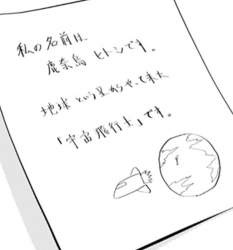 私の名前は、
鹿奈鳥 ヒトシです。
地球という星からやってきた
「宇宙飛行士」です。